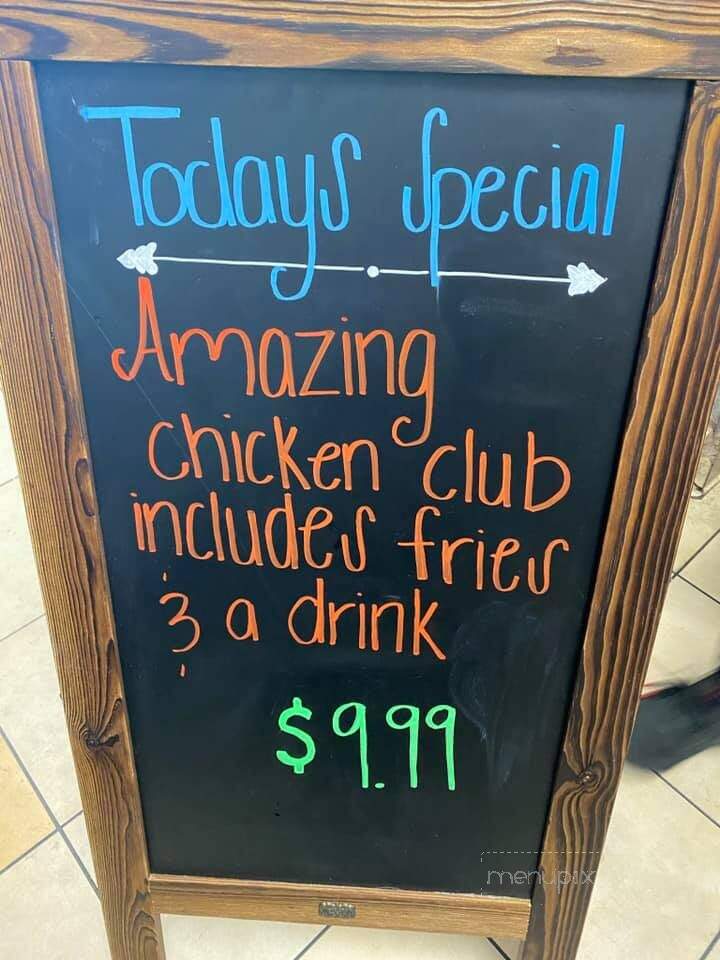 Todays Special
Amazing
chicken club
includes fries
& a drink
$9.99
menupix